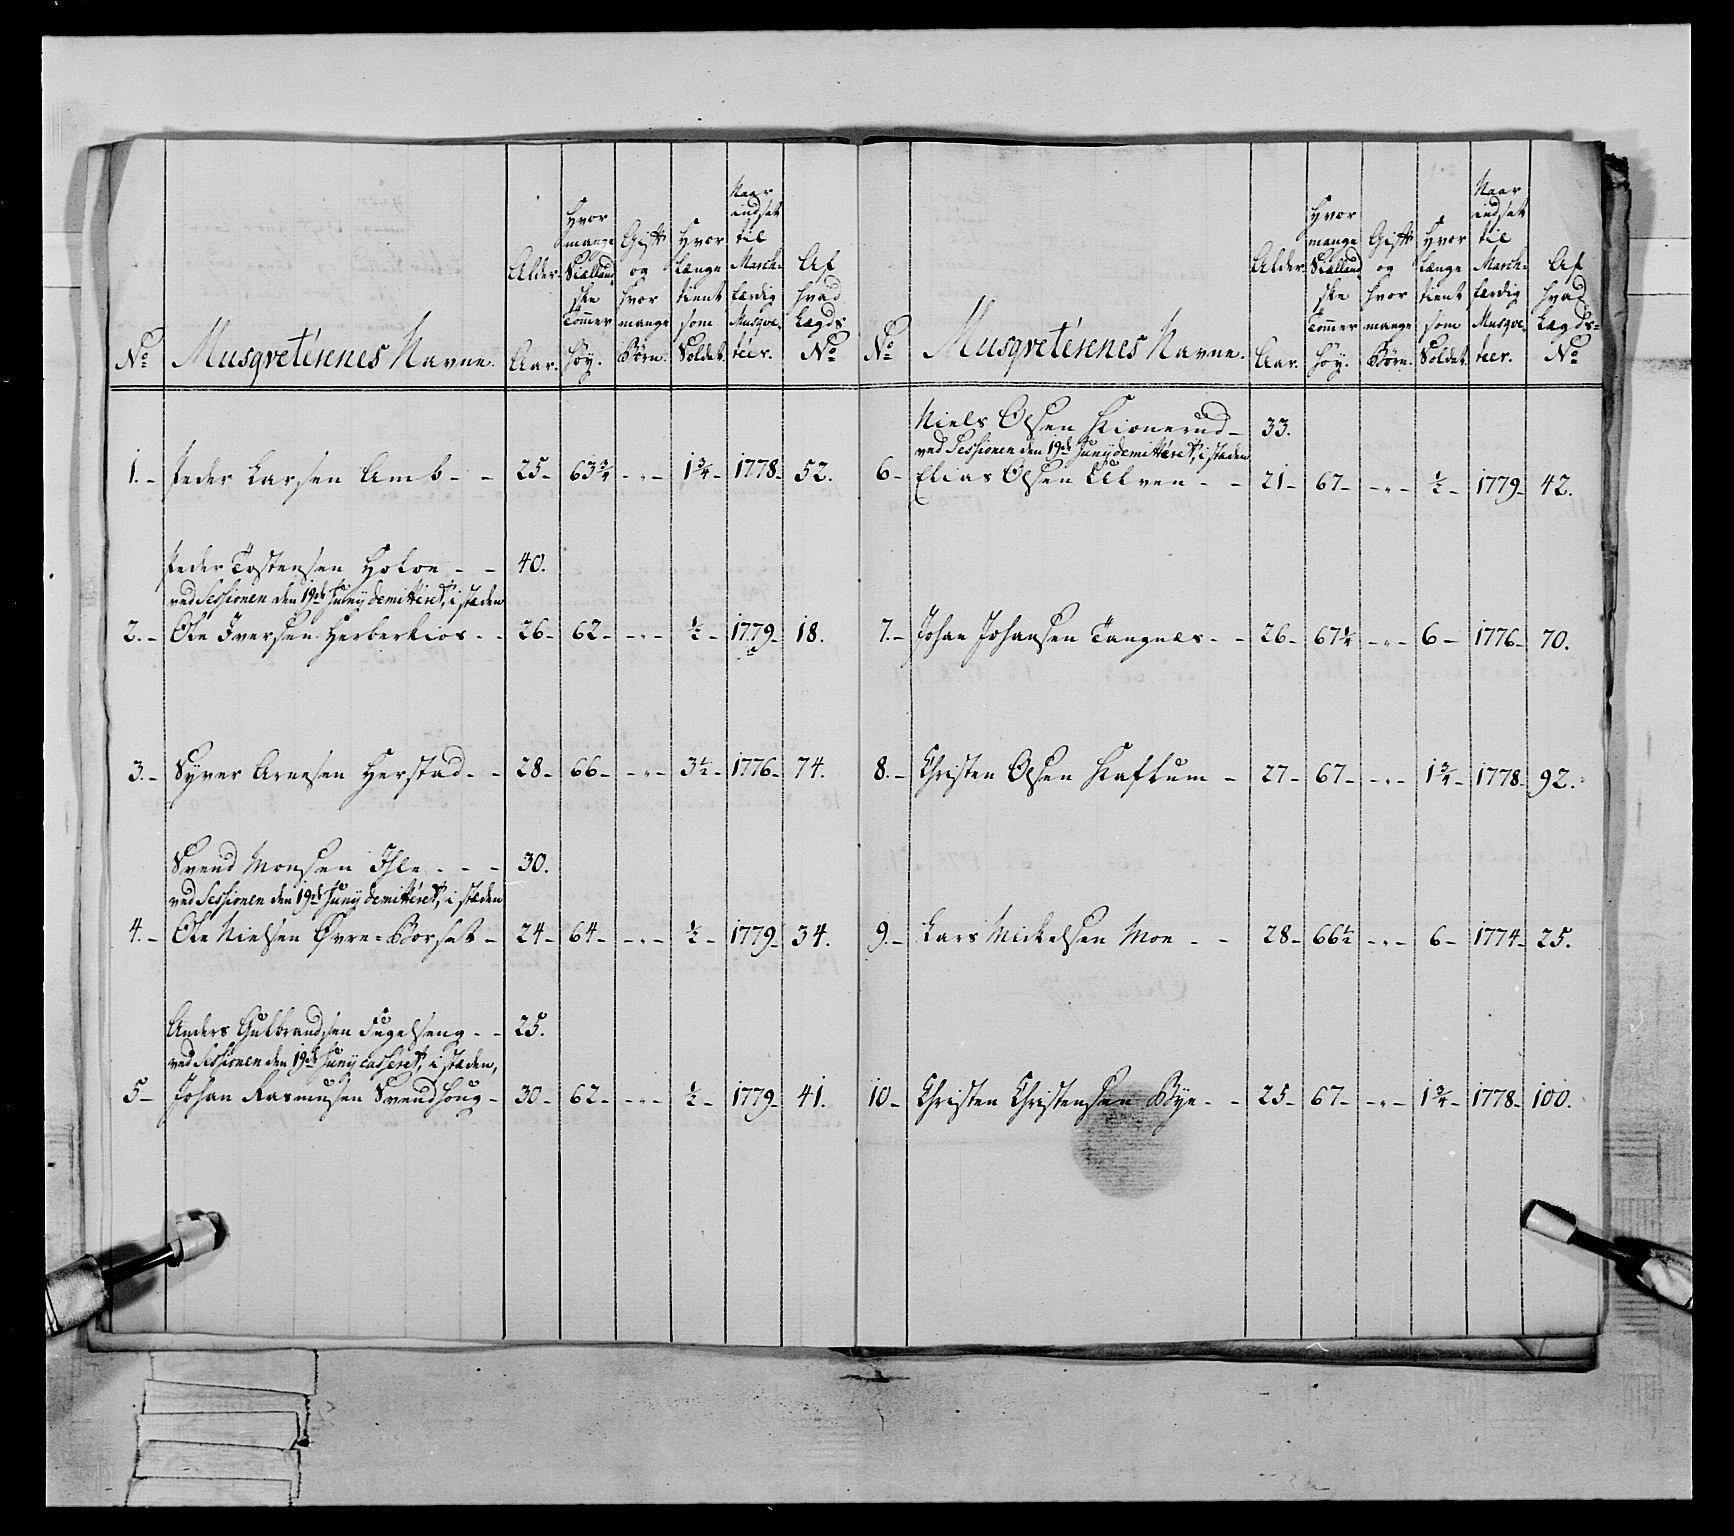 No
Musqveterenes Navne.
Alder
Aar.
Hvor
mange
Siælland
ske
Tommer
høy.
Gift
og
hvor
mange
Børn.
Hvor
længe
tient
som
Soldat.
Naar
indsat
til
March-
færdig
Musqve-
teer.
Af
hvad
Lægds
No
1. Peder Larsen Amb - - 25 - 63¾ - " - 1¾ - 1778 - 52.
Peder Tostensen - - 40.
ved Sessionen den 19de Juny demitteret, i stæden
2. Ole Iversen - - 26 - 62 - " - ½ - 1779 - 18.
3. Syver Arnesen Herstad - - 28 - 66 - " - 3½ - 1776 - 74.
Svend Monsen - - - 30.
ved Sessionen den 19de Juny demitteret, i stæden
4. Ole Nielsen Øvre=Borset - 24 - 64 - " - ½ - 1779 - 34.
Anders Gulbrandsen Fugelseng - - 25.
ved Sessionen den 19de Juny casseret, i stæden,
5 - Johan Rasmusen Svendhoug - 30 - 62 - " - ½ - 1779 - 41.
No
Musqveterenes Navne.
Alder
Aar.
Hvor
mange
Siælland
ske
Tommer
høy.
Gift
og
hvor
mange
Børn.
Hvor
længe
tient
som
Soldat.
Naar
indsat
til
March-
færdig
Musqve-
teer.
Af
hvad
Lægds=
No
Niels Olsen Kionerud - 33.
ved Sessionen den 19de Juny demitteret, i stæden
6 - Elias Olsen - - 21 - 67 - " - ½ - 1779 - 42.
7. - Johan Johansen Tangnes - - 26 - 67¼ - " - 6 - 1776 - 70.
8. - Christen Olsen Kaftum - 27 - 67 - " - 1¾ - 1778 - 92.
9. - Lars Mickelsen Moe - - 28 - 66½ - " - 6 - 1774 - 25.
10 - Christen Christensen Bye - - 25 - 67 - " - 1¾ - 1778 - 100.